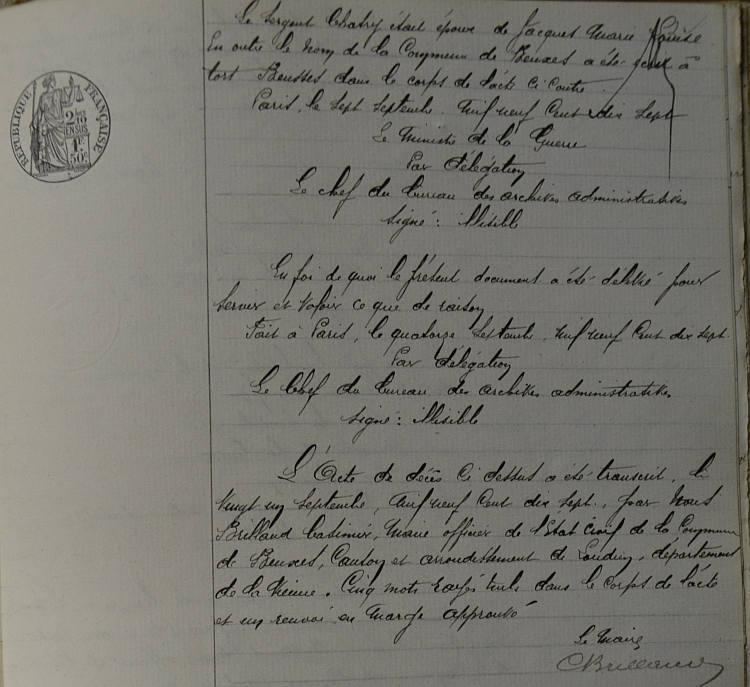 Le Sergent Chatry était époux de Jacques Marie Louise
En outre le nom de la Commune de Beuxes a été écrit à
tort Beusses dans le corps de l'acte ci contre.
Paris, le sept septembre mil neuf cent dix sept
Le Ministre de la Guerre
Par délégation
Le chef du bureau des archives administratives
signé : illisible
REPUBLIQUE FRANÇAISE
2/10
EN SUS
1F
50c
En foi de quoi le présent document a été délivré pour
servir et valoir ce que de raison
Fait à Paris, le quatorze septembre mil neuf cent dix sept.
Par délégation
Le Chef du bureau des archives administratives
signé : illisible
L'Acte de décès ci dessus a été transcrit, le
vingt un septembre, mil neuf cent dix sept., par nous
Brilland Casimir, Maire officier de l'Etat Civil de la Commune
de Beuxes, Canton et arrondissement de Loudun, département
de la Vienne. Cinq mots rayés nuls dans le corps de l'acte
et un renvoi en marge approuvé
Le Maire
CBrilland